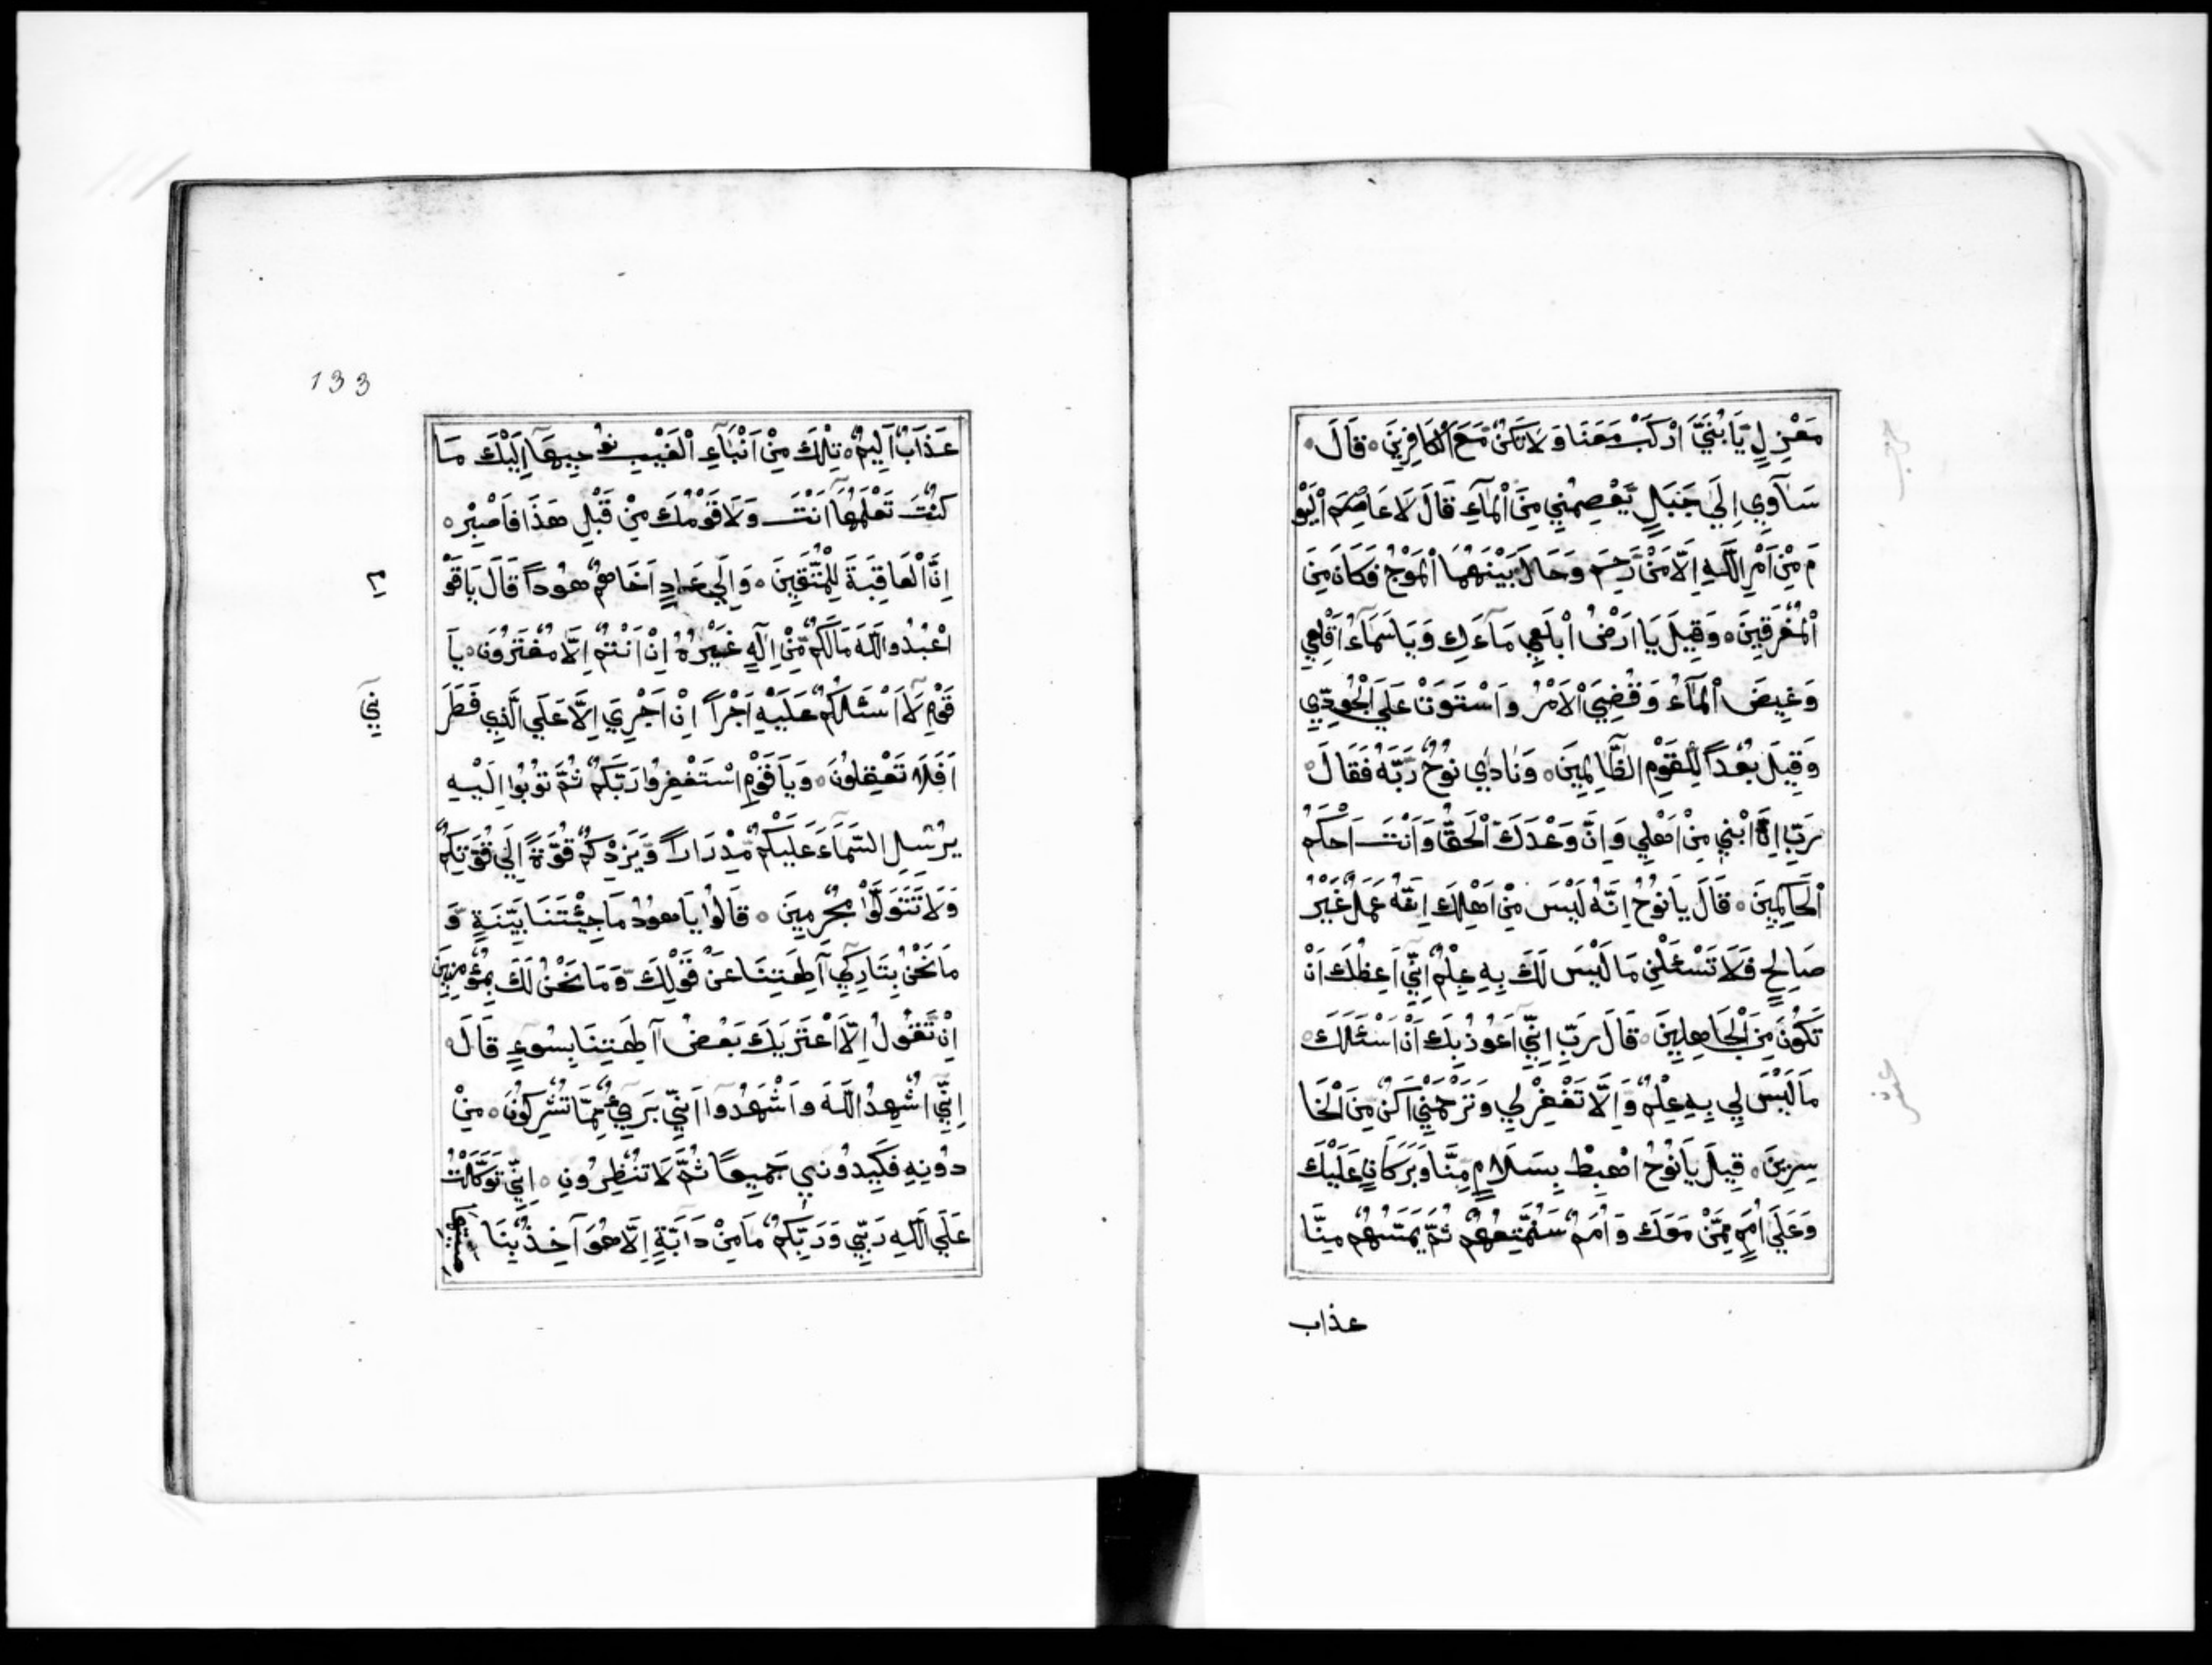 مَعْزِلٍ يَا بُنَيَّ ارْكَبْ مَعَنَا وَلَا تَكُنْ مَعَ الْكَافِرِينَ ۝ قَالَ
سَآوِي اِلَي جَبَلٍ يَعْصِمُنِي مِنَ الْمَآءِ قَالَ لَا عَاصِمَ الْيَوْ
مَ مِنْ اَمْرِ اللَّهِ اِلَّا مَنْ رَحِمَ وَحَالَ بَيْنَهُمَا الْمَوْجُ فَكَانَ مِنَ
الْمُغْرَقِينَ ۝ وَقِيلَ يَا اَرْضُ ابْلَعِي مَآءَكِ وَيَا سَمَآءُ اَقْلِعِي
وَغِيضَ الْمَآءُ وَقُضِيَ الْاَمْرُ وَاسْتَوَتْ عَلَي الْجُودِيِّ
وَقِيلَ بُعْداً لِلْقَوْمِ الظَّالِمِينَ ۝ وَنَادَي نُوحٌ رَبَّهُ فَقَالَ
رَبِّ اِنَّ ابْنِي مِنْ اَهْلِي وَاِنَّ وَعْدَكَ الْحَقُّ وَاَنْتَ اَحْكَمُ
الْحَاكِمِينَ ۝ قَالَ يَا نُوحُ اِنَّهُ لَيْسَ مِنْ اَهْلِكَ اِنَّهُ عَمَلٌ غَيْرُ
صَالِحٍ فَلَا تَسْئَلْنِ مَا لَيْسَ لَكَ بِهِ عِلْمٌ اِنِّي اَعِظُكَ اَنْ
تَكُونَ مِنَ الْجَاهِلِينَ ۝ قَالَ رَبِّ اِنِّي اَعُوذُ بِكَ اَنْ اَسْئَلَكَ
مَا لَيْسَ لِي بِهِ عِلْمٌ وَاِلَّا تَغْفِرْ لِي وَتَرْحَمْنِي اَكُنْ مِنَ الْخَا
سِرِينَ ۝ قِيلَ يَا نُوحُ اهْبِطْ بِسَلَامٍ مِنَّا وَبَرَكَاتٍ عَلَيْكَ
وَعَلَي اُمَمٍ مِمَّنْ مَعَكَ وَاُمَمٌ سَنُمَتِّعُهُمْ ثُمَّ يَمَسُّهُمْ مِنَّا
عذاب
133
عَذَابٌ اَلِيمٌ ۝ تِلْكَ مِنْ اَنْبَآءِ الْغَيْبِ نُوحِيهَآ اِلَيْكَ مَا
كُنْتَ تَعْلَمُهَآ اَنْتَ وَلَا قَوْمُكَ مِنْ قَبْلِ هَذَا فَاصْبِرْ ۝
اِنَّ الْعَاقِبَةَ لِلْمُتَّقِينَ ۝ وَاِلَي عَادٍ اَخَاهُمْ هُوداً قَالَ يَا قَوْ
مِ
اعْبُدُوا اللَّهَ مَا لَكُمْ مِنْ اِلَهٍ غَيْرُهُ اِنْ اَنْتُمْ اِلَّا مُفْتَرُونَ ۝ يَا
قَوْمِ لَآ اَسْئَلُكُمْ عَلَيْهِ اَجْراً اِنْ اَجْرِيَ اِلَّا عَلَي الَّذِي فَطَرَ
نِي
اَفَلَا تَعْقِلُونَ ۝ وَيَا قَوْمِ اسْتَغْفِرُوا رَبَّكُمْ ثُمَّ تُوبُوا اِلَيْهِ
يُرْسِلِ السَّمَآءَ عَلَيْكُمْ مِدْرَاراً وَيَزِدْكُمْ قُوَّةً اِلَي قُوَّتِكُمْ
وَلَا تَتَوَلَّوْا مُجْرِمِينَ ۝ قَالُوا يَا هُودُ مَا جِئْتَنَا بِبَيِّنَةٍ وَ
مَا نَحْنُ بِتَارِكِي آلِهَتِنَا عَنْ قَوْلِكَ وَمَا نَحْنُ لَكَ بِمُؤْمِنِينَ
اِنْ نَقُولُ اِلَّا اعْتَرَيكَ بَعْضُ آلِهَتِنَا بِسُوءٍ قَالَ
اِنِّي اُشْهِدُ اللَّهَ وَاشْهَدُوا اَنِّي بَرِيءٌ مِمَّا تُشْرِكُونَ ۝ مِنْ
دُونِهِ فَكِيدُونِي جَمِيعًا ثُمَّ لَا تُنْظِرُونِ ۝ اِنِّي تَوَكَّلْتُ
عَلَي اللَّهِ رَبِّي وَرَبِّكُمْ مَا مِنْ دَآبَّةٍ اِلَّا هُوَ آخِذٌ بِنَا صيتها